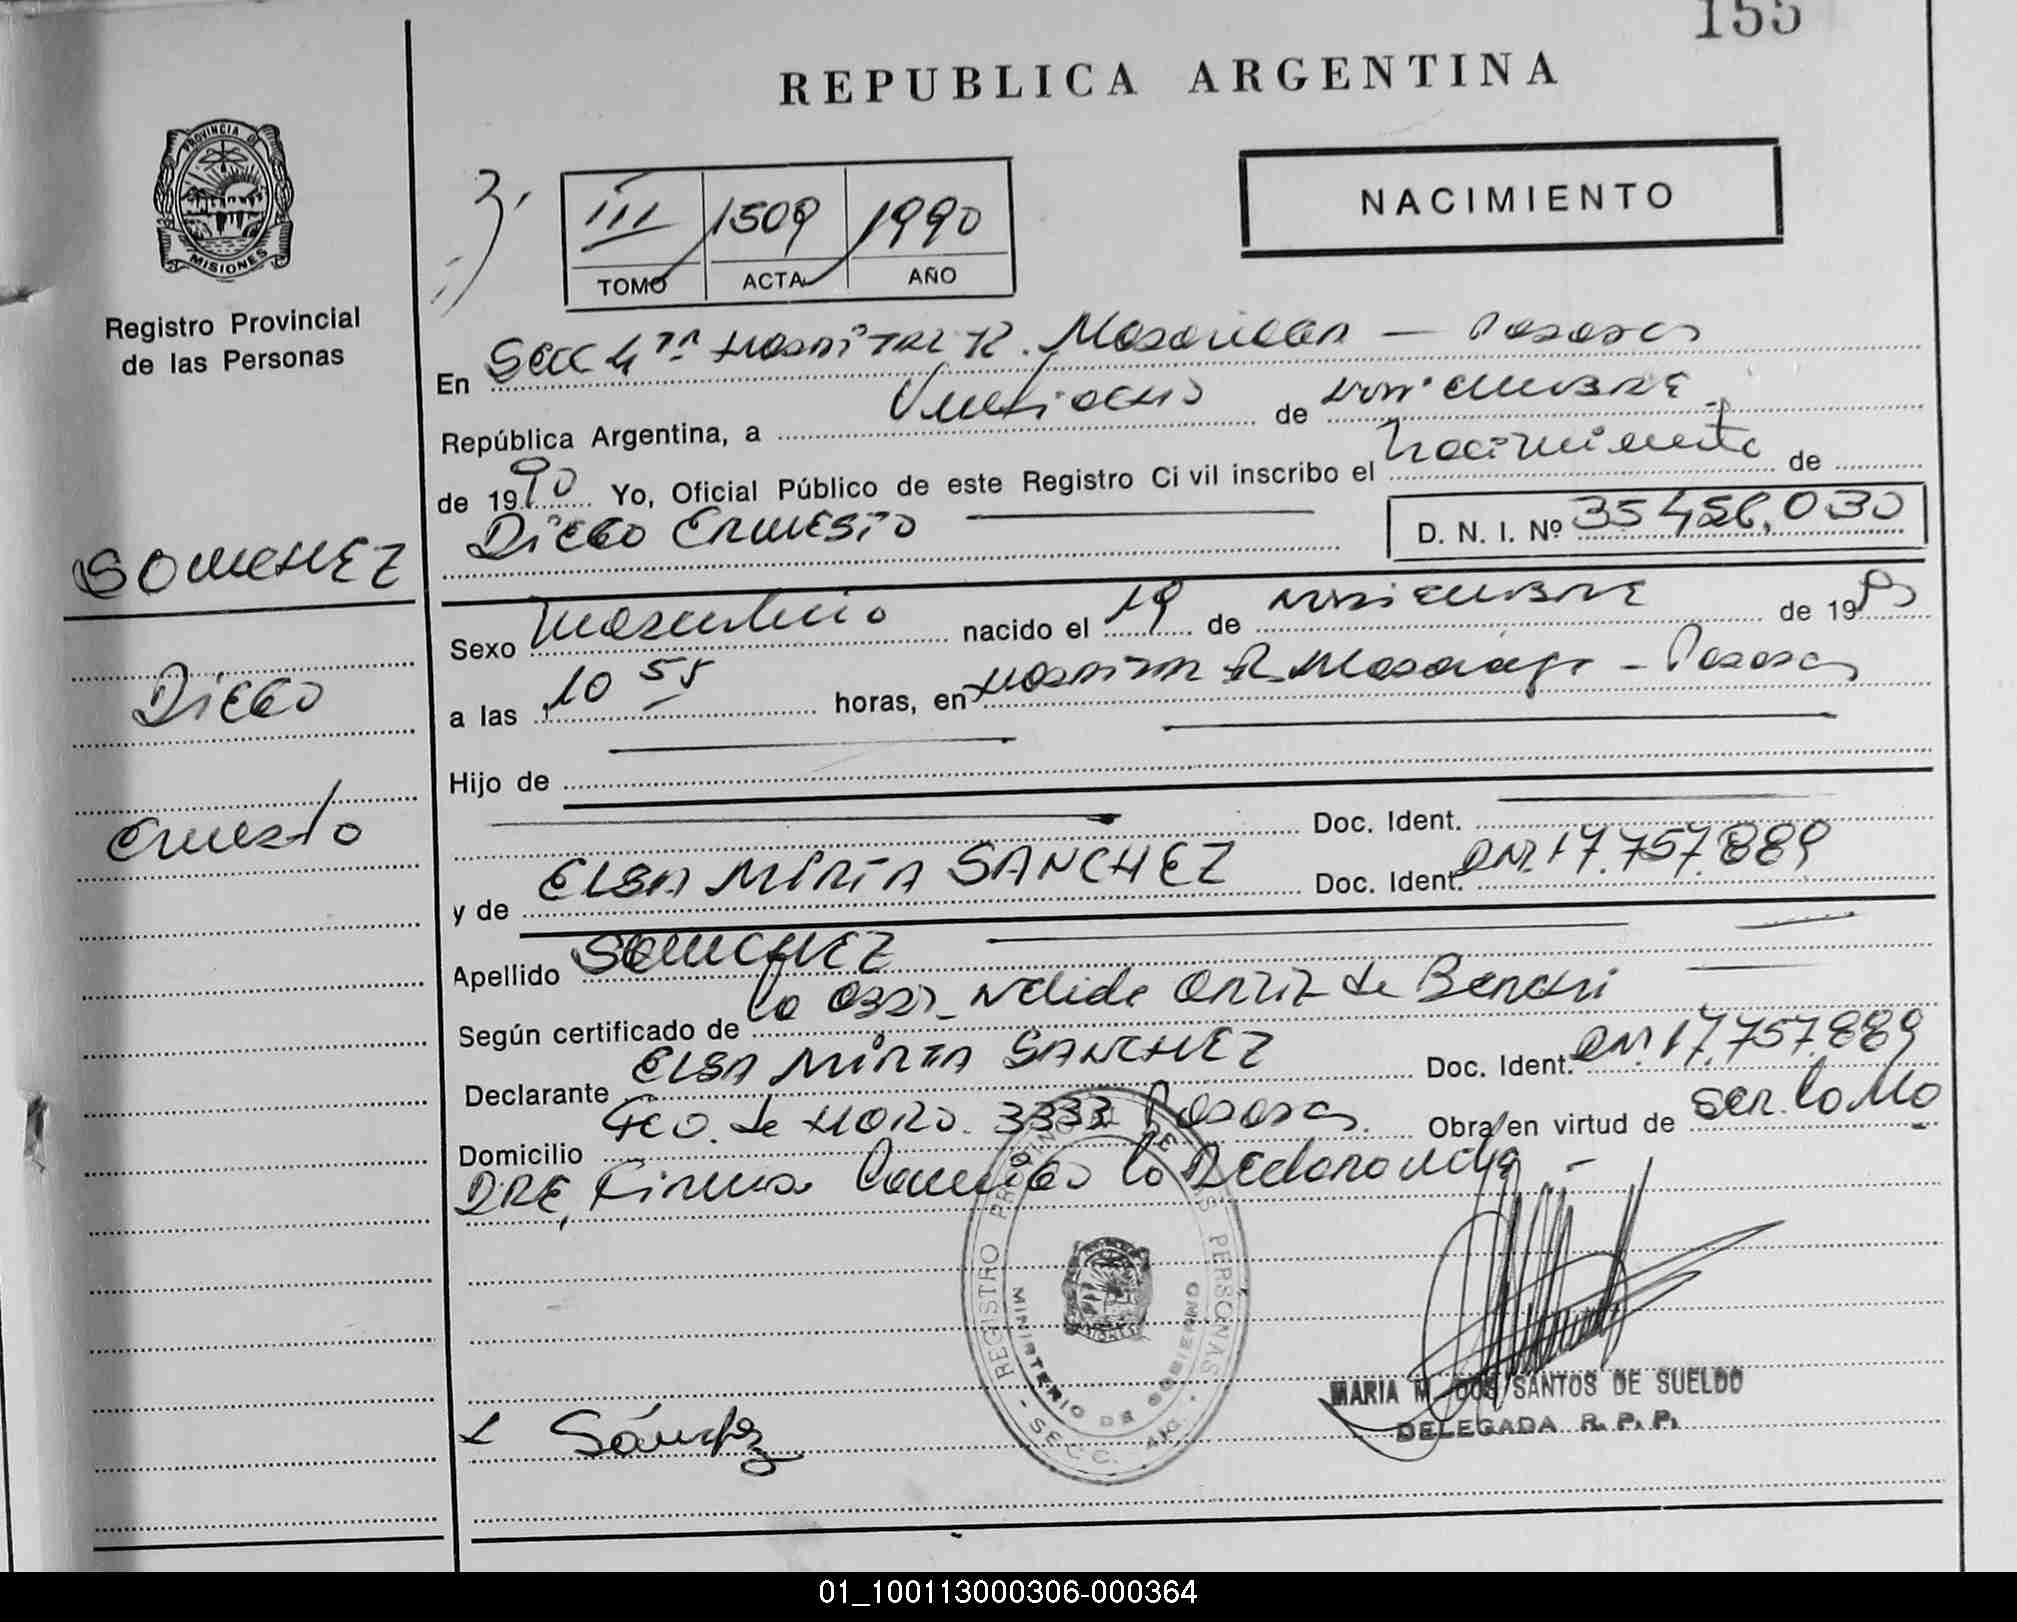 155
REPUBLICA ARGENTINA
PROVINCIA DE
MISIONES
Registro Provincial
de las Personas
III 1509 1990
TOMO ACTA AÑO
NACIMIENTO
En Secc 4ta Hospital R. Madariaga — Posadas
República Argentina, a Veintiocho de noviembre
de 1990 Yo, Oficial Público de este Registro Ci vil inscribo el nacimiento de
Diego Ernesto
D. N. I. Nº 35.456.030
SANCHEZ
Diego
Ernesto
Sexo masculino nacido el 19 de noviembre de 1990
a las 10 55 horas, en Hospital R. Madariaga - Posadas
Hijo de
Doc. Ident.
y de ELSA MIRTA SANCHEZ Doc. Ident. DNI 17.757.889
Apellido SANCHEZ
Según certificado de la Obst. Nelida Ortiz de
Declarante ELSA MIRTA SANCHEZ Doc. Ident. DNI 17.757.889
Domicilio Fco. de Haro 3333 Posadas. Obra en virtud de ser la Ma
DRE, Firma Conmigo la Declarante
REGISTRO PROVINCIAL DE LAS PERSONAS
MINISTERIO DE GOBIERNO
SECC.
Sánchez
MARIA M. DOS SANTOS DE SUELDO
DELEGADA R. P. P.
01_100113000306-000364